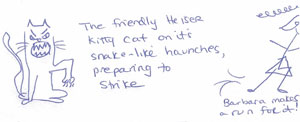 The friendly Heiser
kitty cat on it's
snake-like haunches,
preparing to
strike
Barbara makes
a run for it!